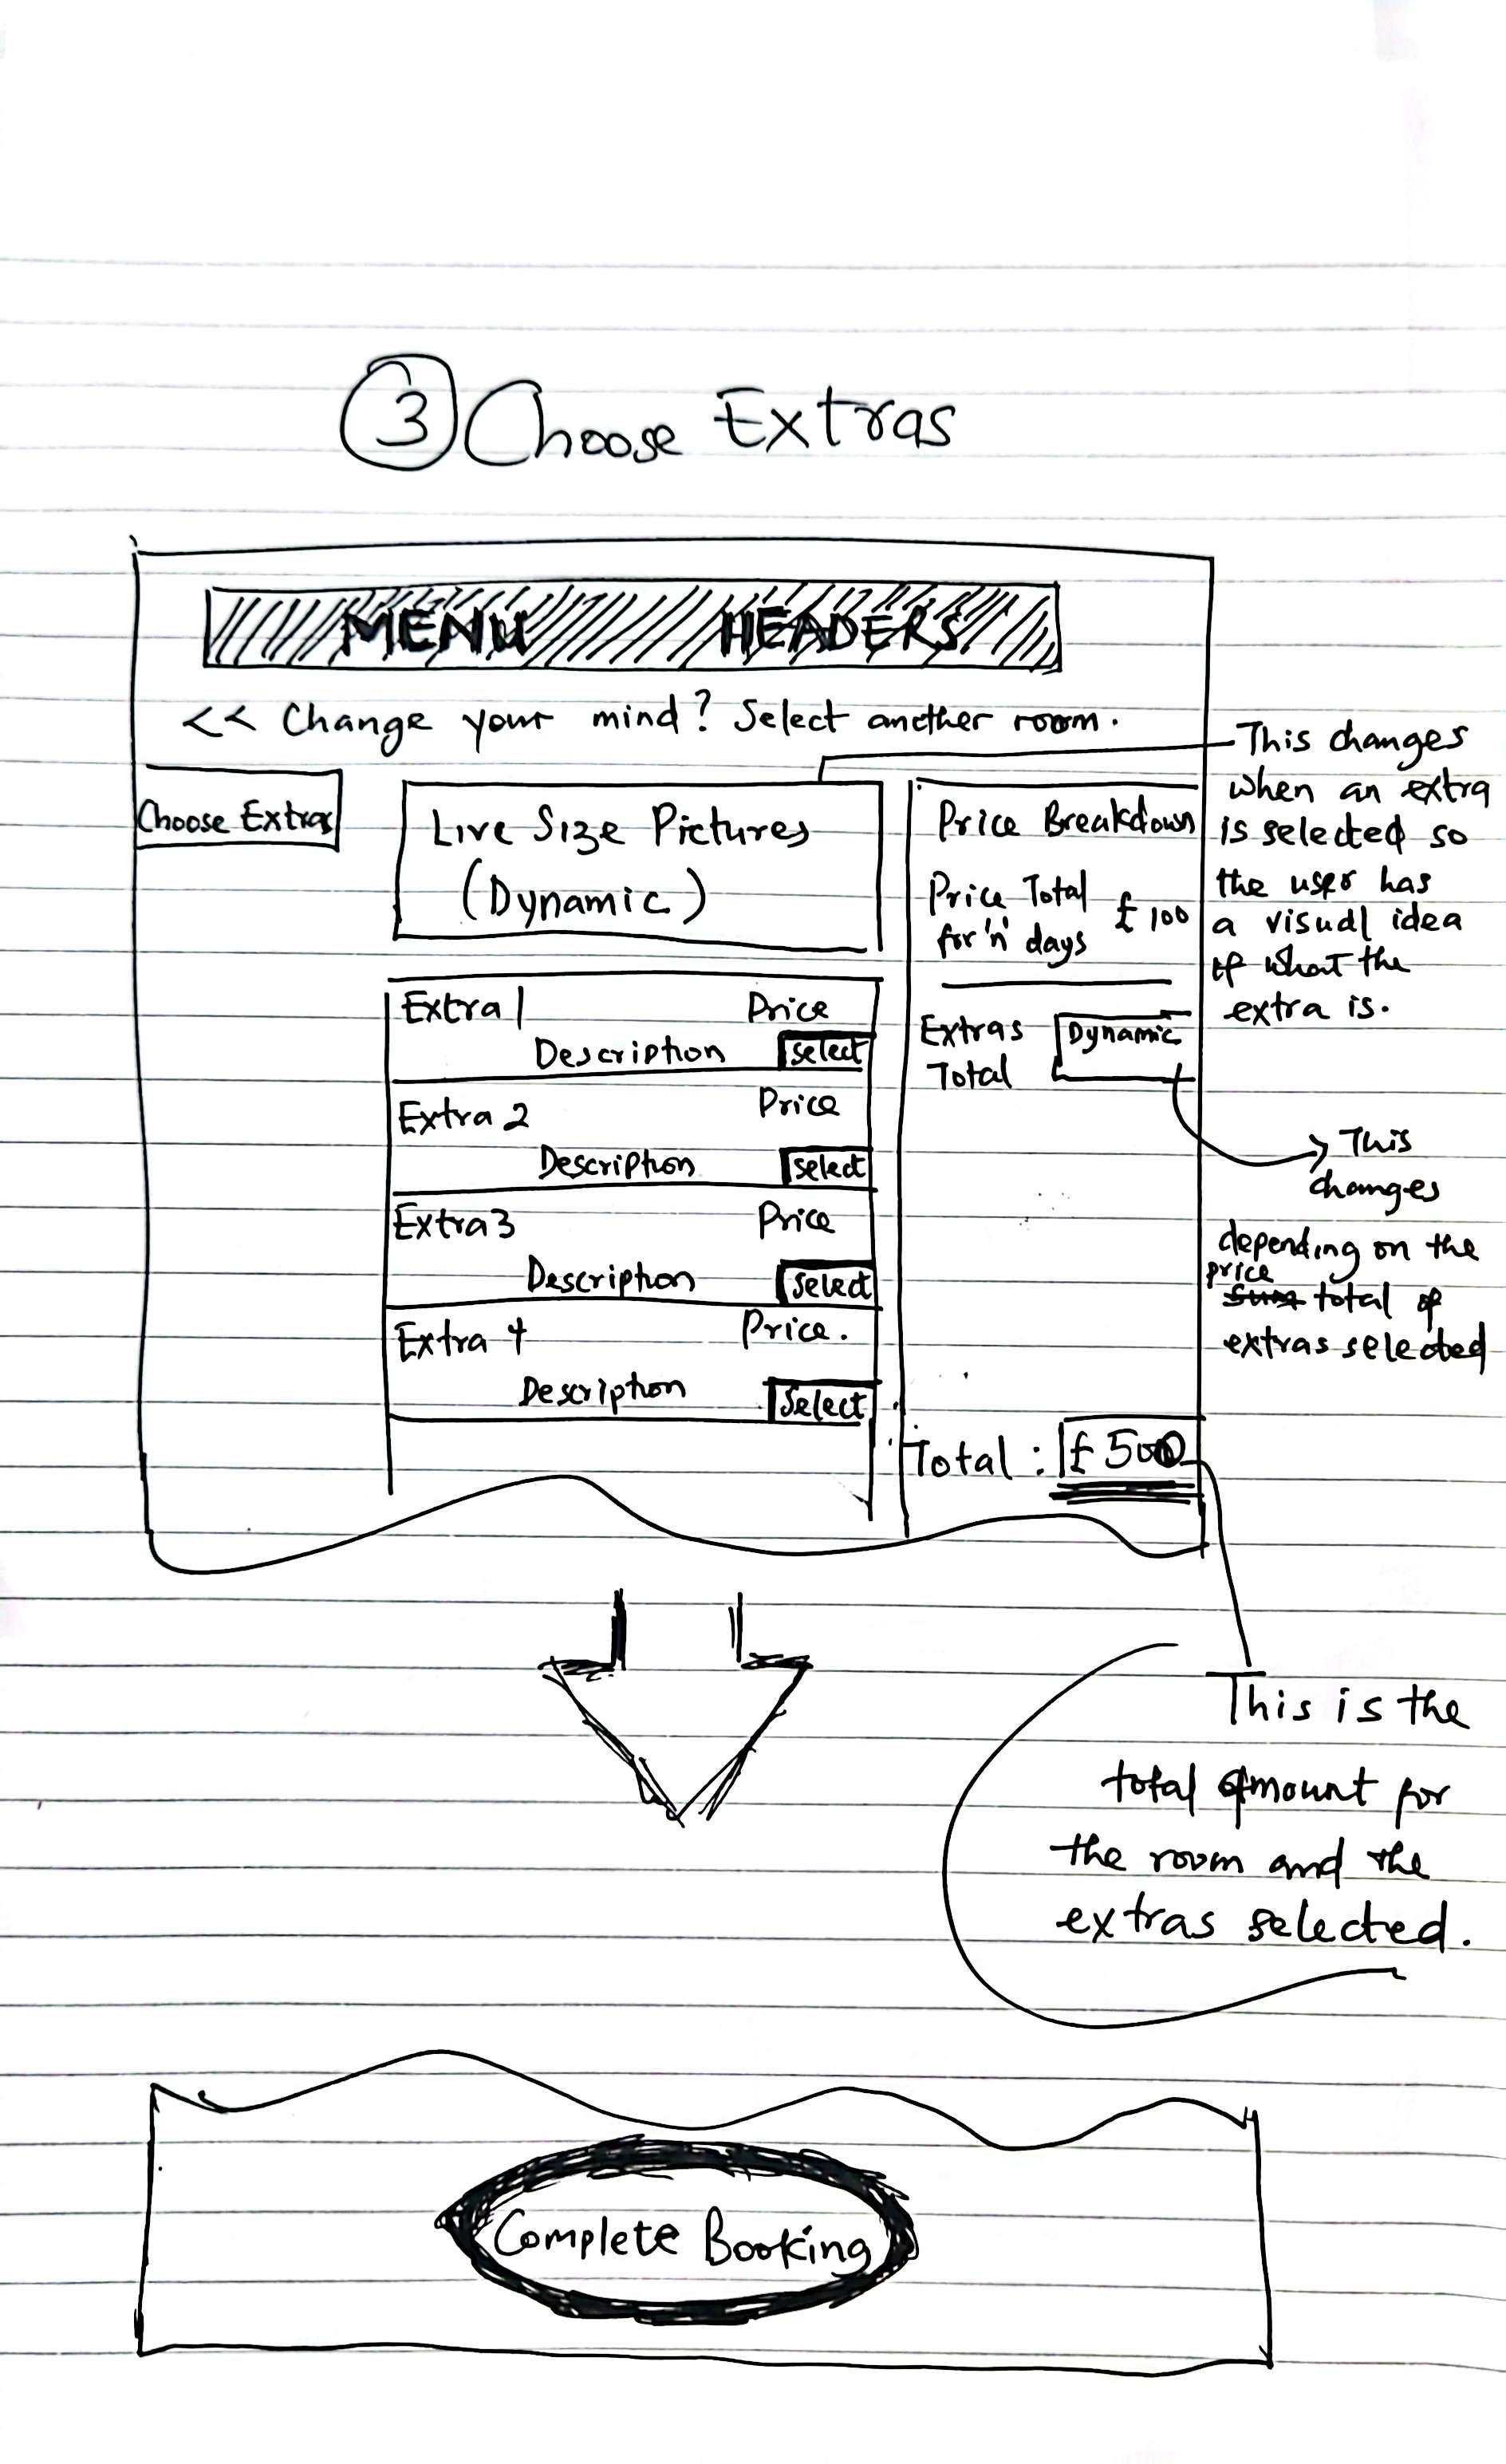 3 Choose Extras
MENU HEADERS
<< Change your mind? Select another room.
Choose Extras
Live Size Pictures
(Dynamic)
Extra 1 Price
Description Select
Extra 2 Price
Description Select
Extra 3 Price
Description Select
Extra 4 Price.
Description Select
Price Breakdown
Price Total
for 'n' days £ 100
Extras
Total
Dynamic
Total : £ 500
This changes
when an extra
is selected so
the user has
a visual idea
of what the
extra is.
This
changes
depending on the
price
total of
extras selected
This is the
total amount for
the room and the
extras selected.
Complete Booking